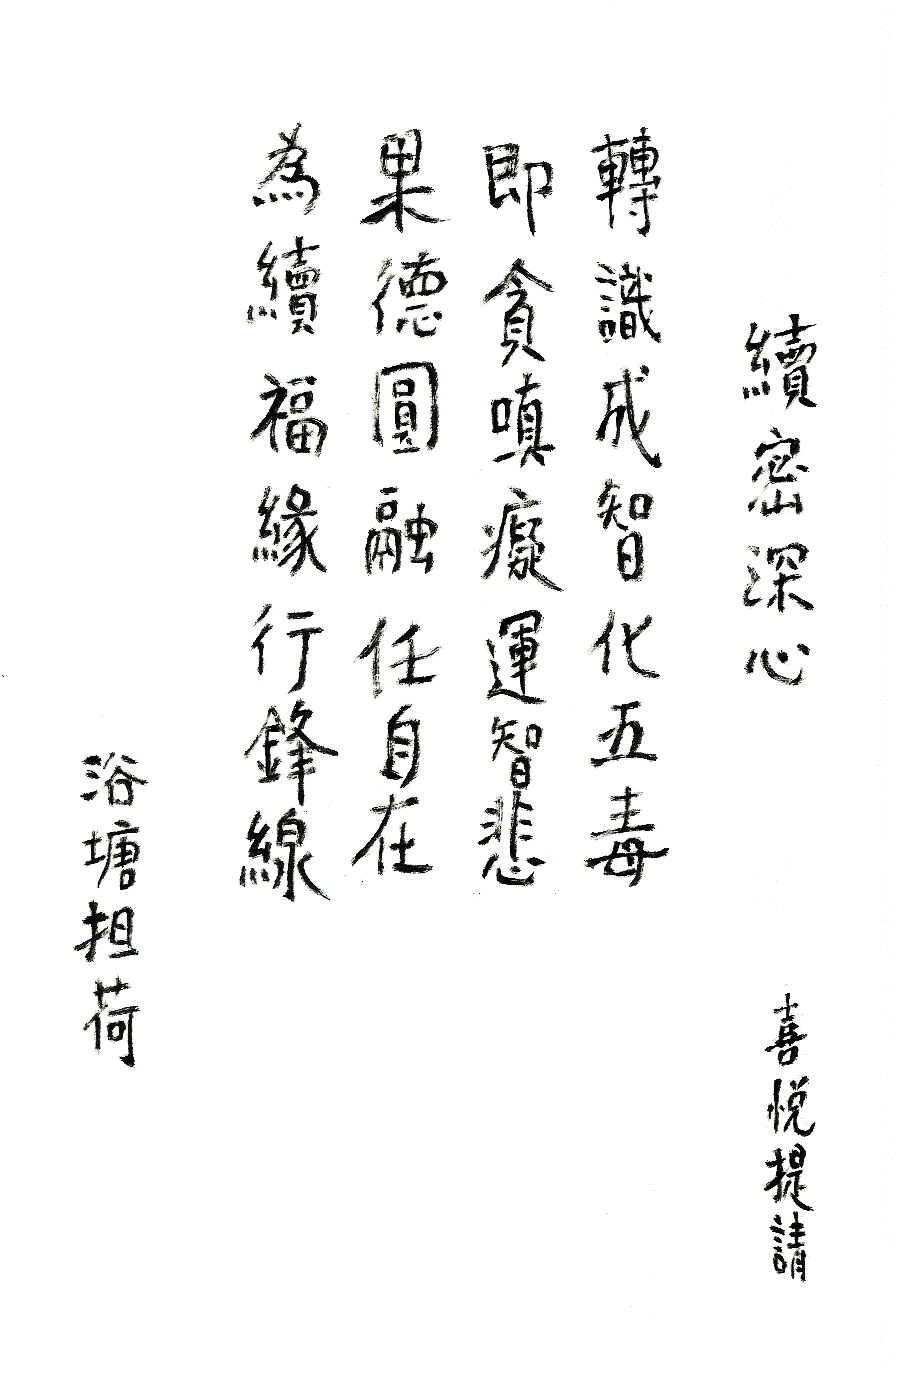 續密深心
喜悅提請
轉識成智化五毒
即貪嗔癡運智悲
果德圓融任自在
為續福緣行鋒線
浴塘担荷